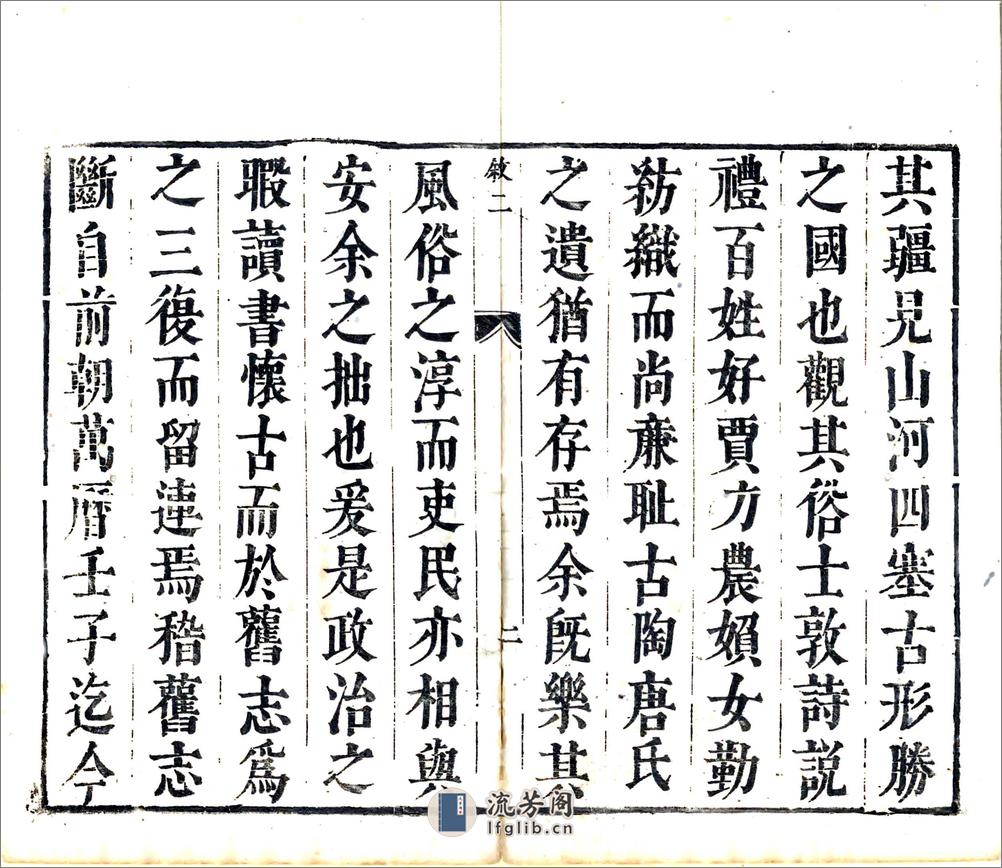 其疆見山河四塞古形勝
之國也觀其俗士敦詩說
禮百姓好賈力農媍女勤
紡織而尚亷耻古陶唐氏
之遺猶有存焉余旣樂其
敘二
二
風俗之淳而吏民亦相與
安余之拙也爰是政治之
暇讀書懷古而於舊志爲
之三復而留連焉稽舊志
斷自前朝萬曆壬子迄今
流芳阁
lfglib.cn